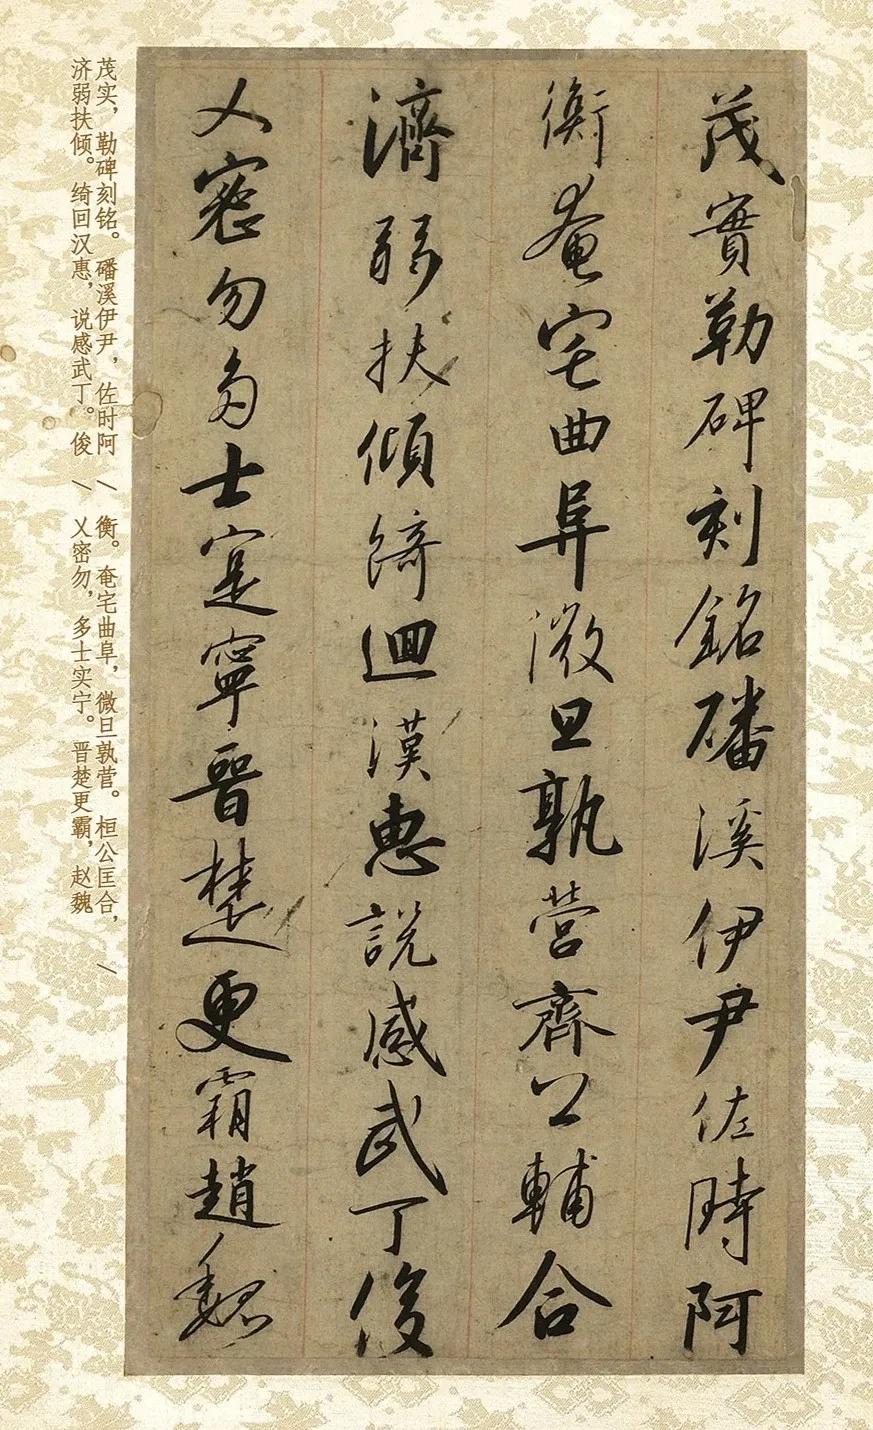 茂實勒碑刻銘磻溪伊尹佐時阿
衡奄宅曲阜微旦孰營齊公輔合
濟弱扶傾綺迴漢惠說感武丁俊
乂密勿多士寔寧晉楚更霸趙魏
茂实，勒碑刻铭。磻溪伊尹，佐时阿\衡。奄宅曲阜，微旦孰营。桓公匡合，\
济弱扶倾。绮回汉惠，说感武丁。俊\乂密勿，多士实宁。晋楚更霸，赵魏